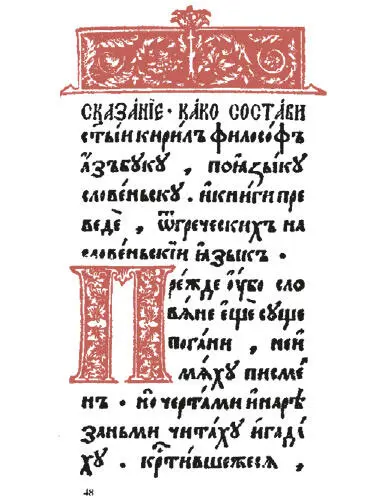 сказа́нїе · ка́ко соста́ви
ст҃ы́й кири́лъ філосо́фъ
а҆́збꙋкꙋ , по ꙗ҆зы́кꙋ
слове́ньскꙋ . и҆ кни́ги пре
ведѐ , ѿ гре́ческихъ на
слове́ньскїй ꙗ҆зы́къ ·
Пре́жде ᲂу҆́бо сло
вѧ́не є҆щѐ сꙋ́ще
пога́ни , не и҆
мѧ́хꙋ писме́
нъ · но черта́ми и҆ нарѣ́
заньми чита́хꙋ и҆ гада́
хꙋ . кр҃ти́вшежесѧ ,
48